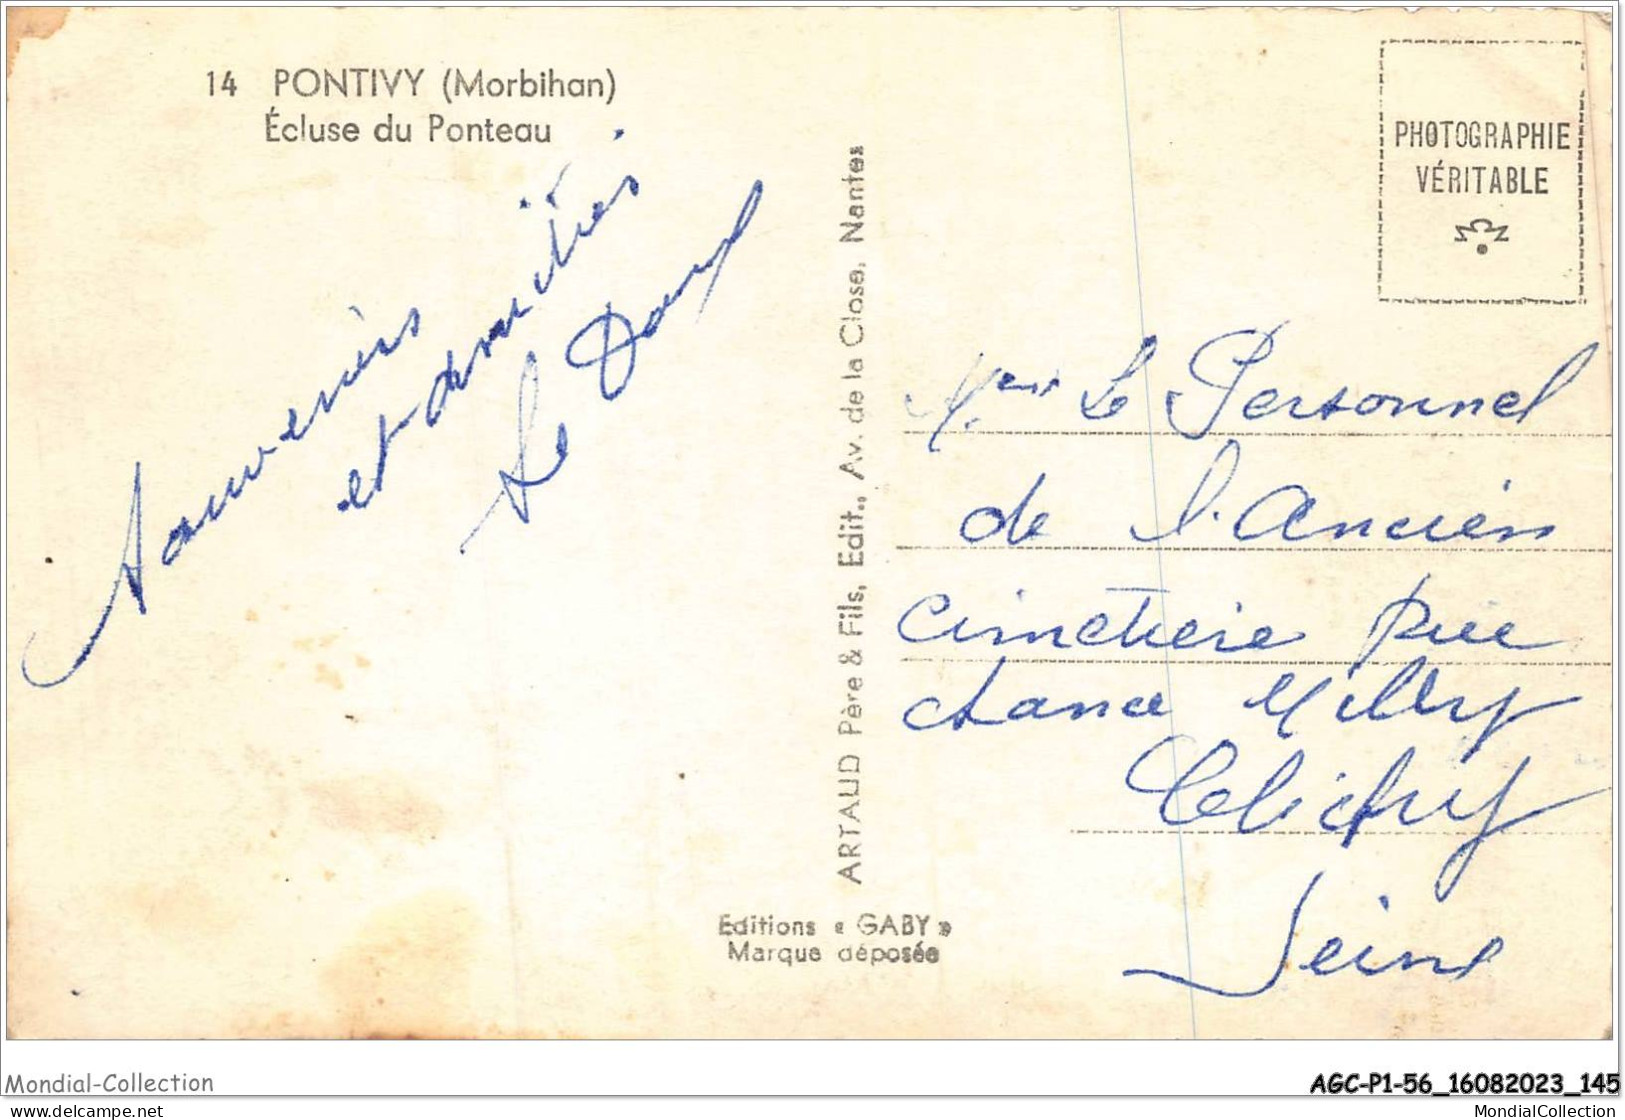 14 PONTIVY (Morbihan)
Écluse du Ponteau
PHOTOGRAPHIE
VÉRITABLE
et amitiés
Le
ARTAUD Père & Fils, Edit., Av. de la Close, Nantes
Le Personnel
de l'Ancien
cimetière Rue
chance Milly
Clichy
Seine
Editions « GABY »
Marque déposée
Mondial-Collection
AGC-P1-56_16082023_145
www.delcampe.net
MondialCollection